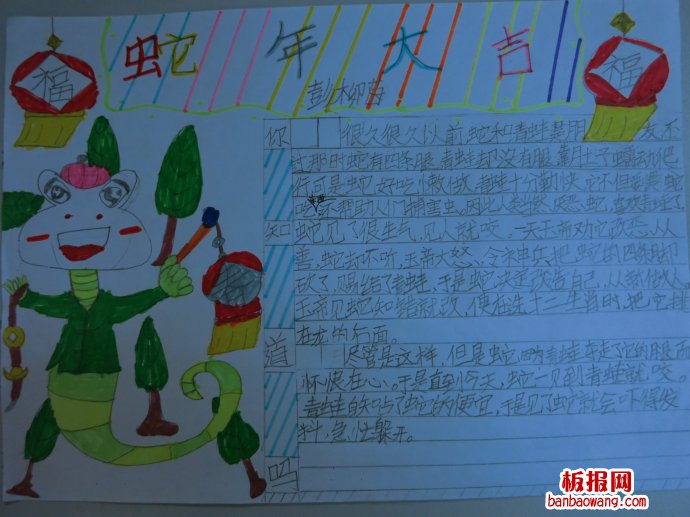 蛇年大吉
福
福
彭柳海
你知道吗
很久很久以前,蛇和青蛙是朋友,不
过那时蛇有四条腿,青蛙却没有腿,靠肚子蠕动爬
行可是蛇好吃懒做,青蛙十分勤快,它不但要养蛇
帮助人们捕害虫。因此人类
蛇见了很生气,见人就咬,一天玉帝劝它改恶从
善,蛇却不听,玉帝大怒,令神兵把蛇的四条脚
砍了,赐给了青蛙,于是蛇决定改造自己,从新做人。
玉帝见蛇知错就改,便在选十二生肖时,把它排
在龙的后面。
尽管是这样,但是蛇因为青蛙夺走了它的腿而
怀恨在心,于是直到今天,蛇一见到青蛙就咬。
青蛙自知占了蛇的便宜,于是见了蛇就会吓得发
抖,急忙躲开。
板报网
banbaowang.com